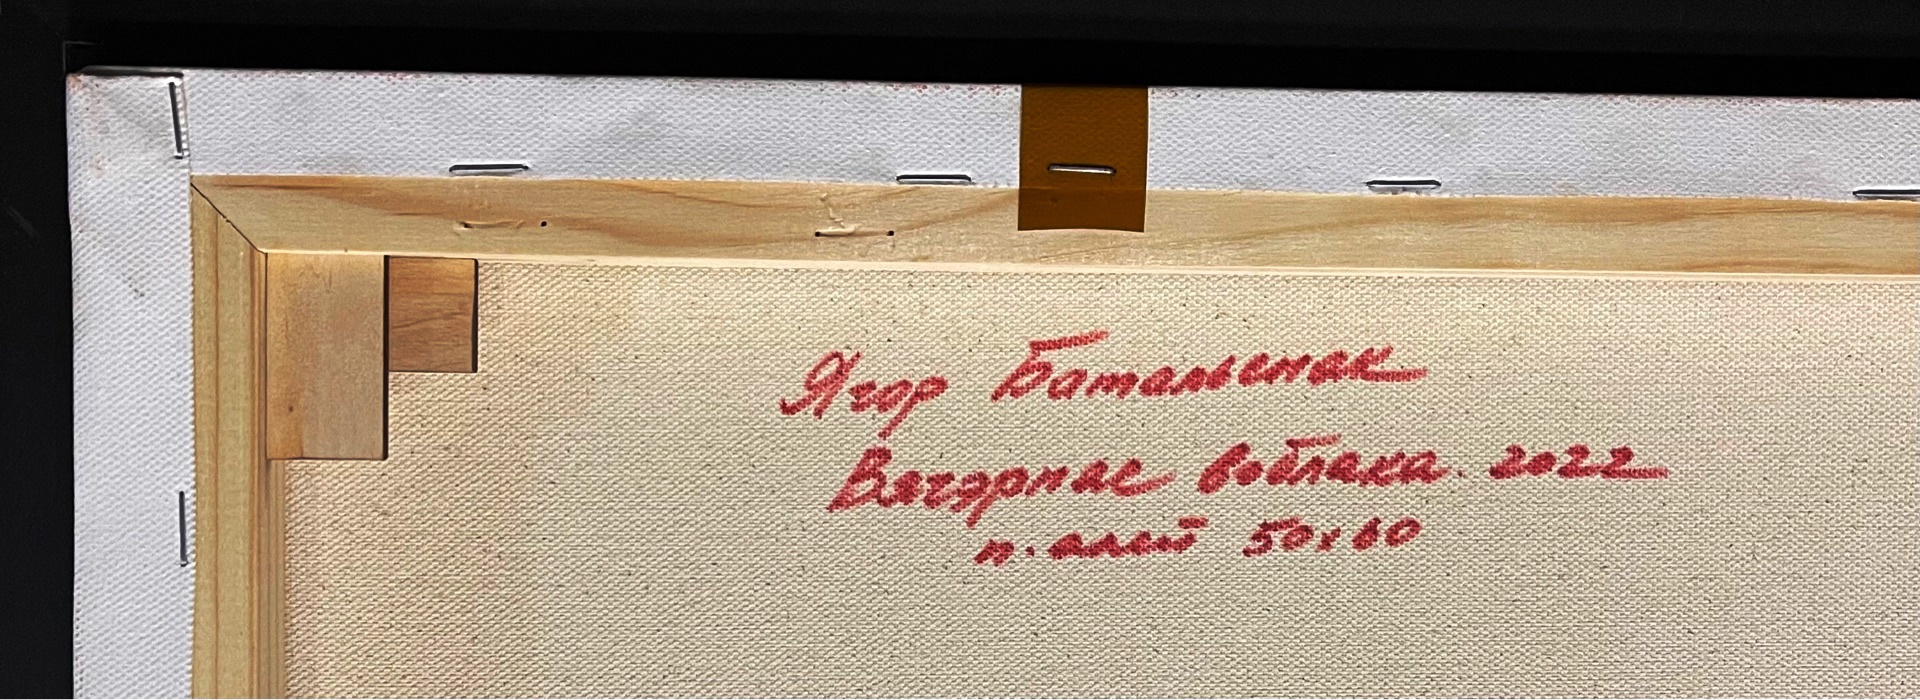 Ягор Батальонак
Вячэрняе воблака. 2022
п. алей 50x60